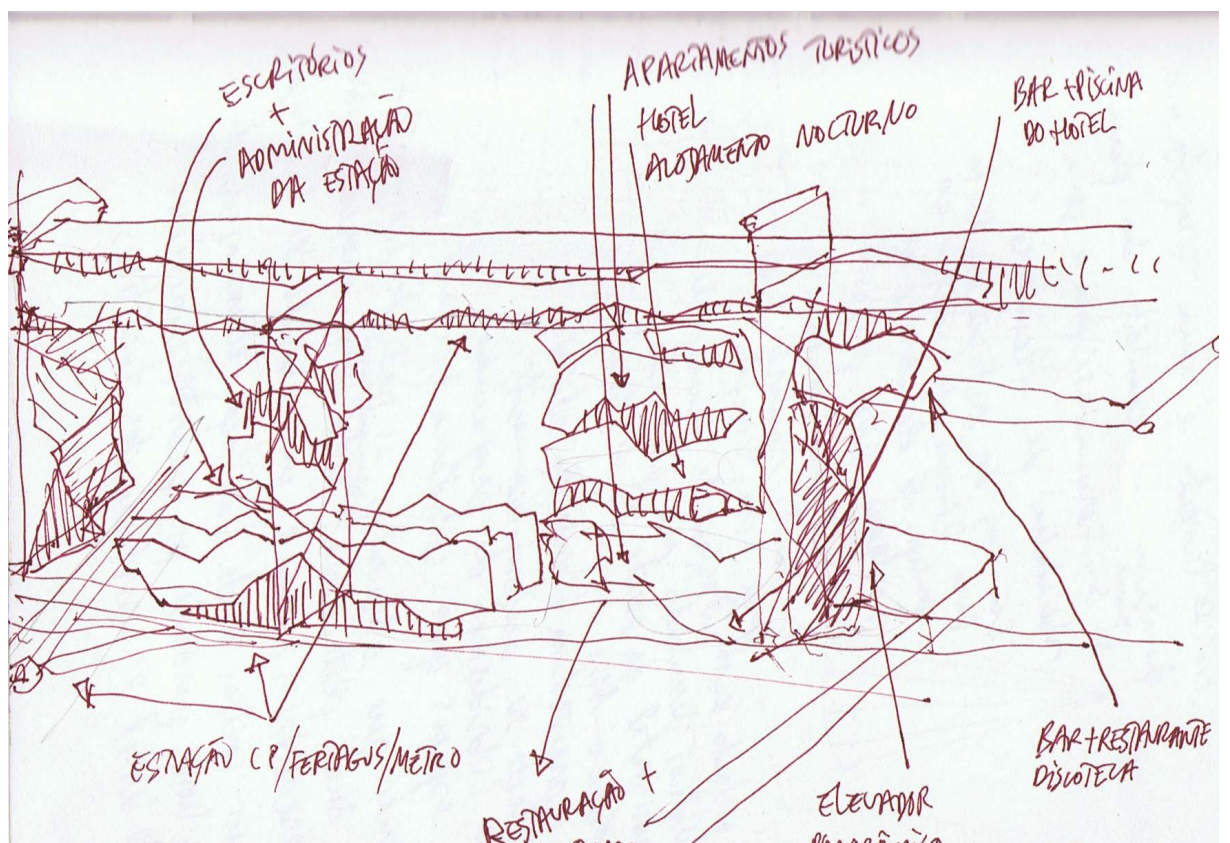 ESCRITÓRIOS
+
ADMINISTRAÇÃO
DA ESTAÇÃO
APARTAMENTOS TURISTICOS
HOTEL
ALOJAMENTO NOCTURNO
BAR + PISCINA
DO HOTEL
ESTAÇÃO CP/FERTAGUS/METRO
RESTAURAÇÃO +
ELEVADOR
PANORÂMICO
BAR + RESTAURANTE
DISCOTECA